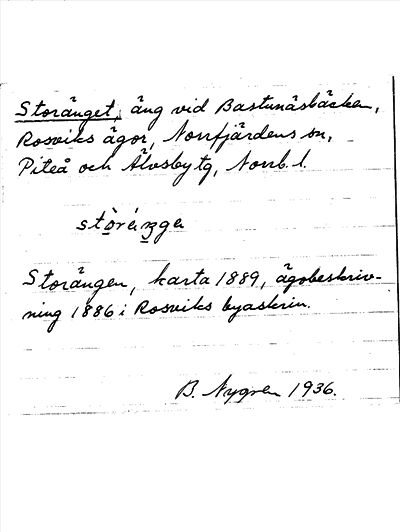 Storänget, äng vid Bastunäsbäcken,
Rosviks ägor, Norrfjärdens sn,
Piteå och Älvsby tg, Norrb. l.
Storängen, karta 1889, ägobeskriv-
ning 1886 i Rosviks byaskrin.
B. Nygren 1936.